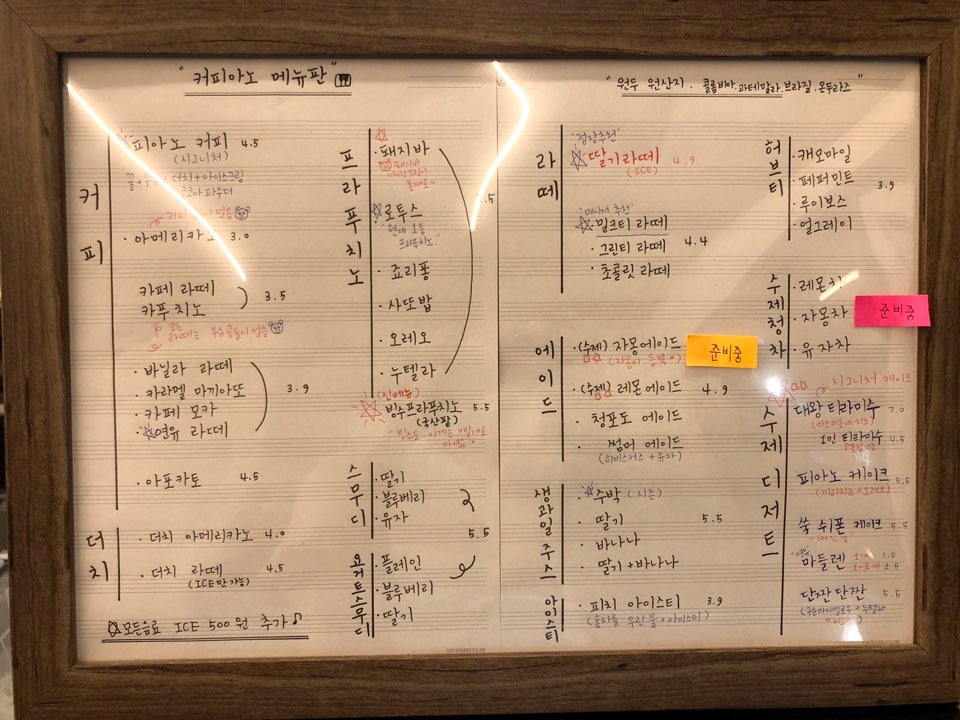 "커피아노 메뉴판"
커피
피아노 커피 4.5
(시그니처)
더치 + 아이스크림
코코아 파우더
· 아메리카노 3.0
카페 라떼
카푸치노 3.5
모든
라떼는 우유곰돌이 얼음
· 바닐라 라떼
· 카라멜 마끼아또
· 카페 모카
연유 라떼
3.9
· 아포카토 4.5
더치
· 더치 아메리카노 4.0
· 더치 라떼 4.5
(ICE만 가능)
모든음료 ICE 500원 추가
프라푸치노
· 돼지바
돼지바
아이스크림이
통째로~
· 로투스
"현재 1등
프라푸치노"
· 죠리퐁
· 사또밥
· 오레오
· 누텔라
.5
(신메뉴)
빙수프라푸치노 5.5
(국산팥)
"빙수도 이제는 빨대로
마셔요"
스무디
· 딸기
· 블루베리
· 유자
5.5
요거트스무디
· 플레인
· 블루베리
· 딸기
"원두 원산지. 콜롬비아.과테말라.브라질.온두라스"
라떼
'점장추천'
딸기라떼 4.9
(ICE)
'매니저 추천'
밀크티 라떼
· 그린티 라떼 4.4
· 초콜릿 라떼
에이드
· (수제) 자몽에이드
(자몽이 듬뿍♥)
준비중
· (수제) 레몬에이드 4.9
· 청포도 에이드
· 썸머 에이드
(히비스커스 + 유자)
생과일주스
· 수박 (시즌)
· 딸기 5.5
· 바나나
· 딸기+바나나
아이스티
· 피치 아이스티 3.9
(홍차를 우린 물 + 아이스티)
허브티
· 캐모마일
· 페퍼민트
· 루이보스
· 얼그레이
3.9
수제청차
· 레몬차
· 자몽차
준비중
· 유자차
수제디저트
시그니처 케이크
대왕 티라미수 7.0
(마스카포네 치즈)
1인 티라미수 4.5
피아노 케이크 5.5
(끼리치즈 + 오레오)
쑥 쉬폰 케이크 5.5
"100% 쑥"
마들렌 1개 1.5
2.5
단짠단짠 5.5
(구운마시멜로우 + 누텔라
+ 비스킷)